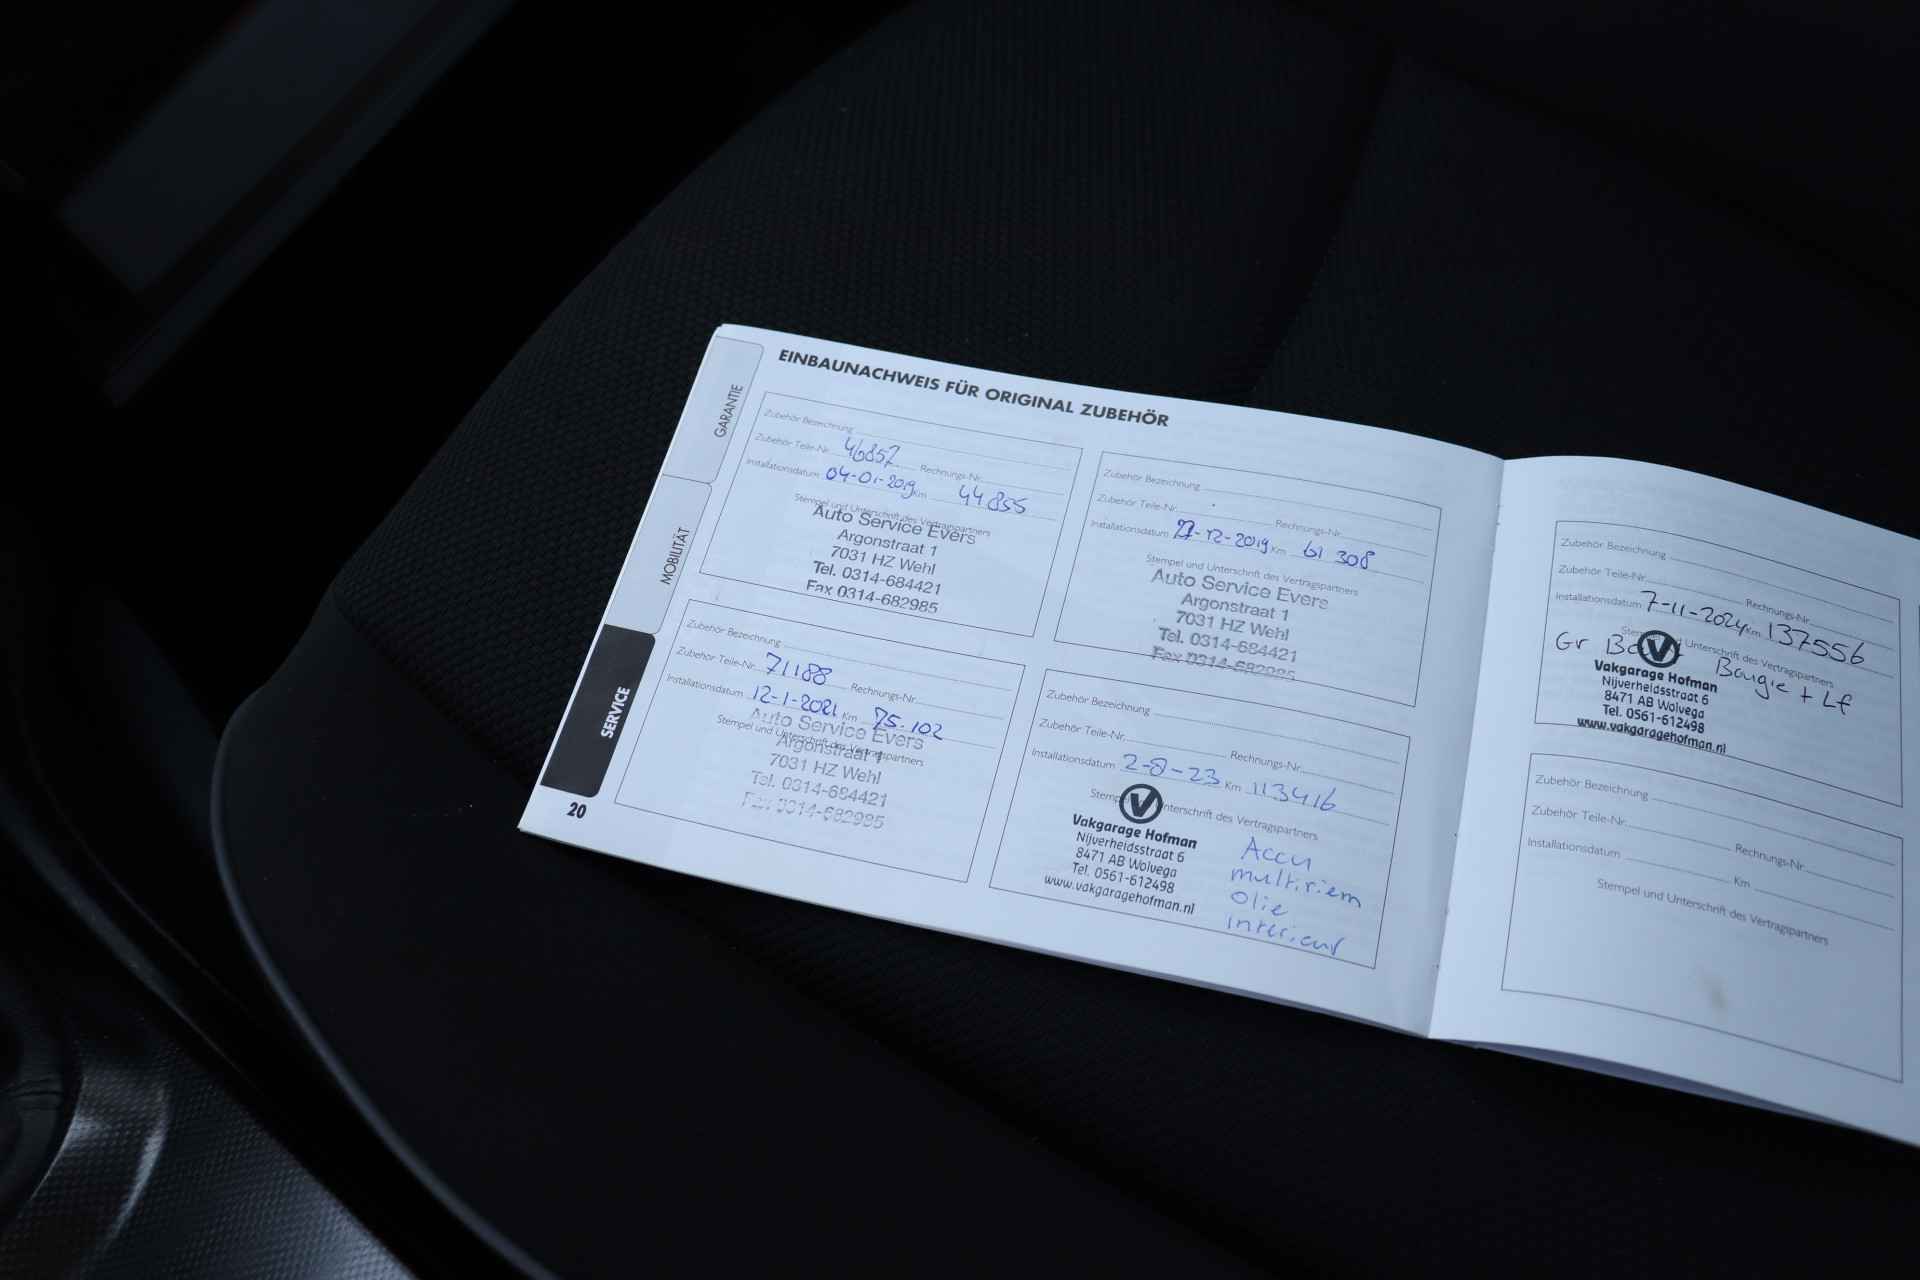 EINBAUNACHWEIS FÜR ORIGINAL ZUBEHÖR
GARANTIE
MOBILITÄT
SERVICE
20
Zubehör Bezeichnung
Zubehör Teile-Nr. 46857 Rechnungs-Nr.
Installationsdatum 04-01-2019 Km 44855
Stempel und Unterschrift des Vertragspartners
Auto Service Evers
Argonstraat 1
7031 HZ Wehl
Tel. 0314-684421
Fax 0314-682985
Zubehör Bezeichnung
Zubehör Teile-Nr. Rechnungs-Nr.
Installationsdatum -12-2019 Km 61 308
Stempel und Unterschrift des Vertragspartners
Auto Service Evers
Argonstraat 1
7031 HZ Wehl
Tel. 0314-684421
Fax 0314-682985
Zubehör Bezeichnung
Zubehör Teile-Nr. 71188 Rechnungs-Nr.
Installationsdatum 12-1-2021 Km 75.102
Stempel und Unterschrift des Vertragspartners
Auto Service Evers
Argonstraat 1
7031 HZ Wehl
Tel. 0314-684421
Fax 0314-682985
Zubehör Bezeichnung
Zubehör Teile-Nr. Rechnungs-Nr.
Installationsdatum 2-8-23 Km 113416
Stempel und Unterschrift des Vertragspartners
Vakgarage Hofman
Nijverheidsstraat 6
8471 AB Wolvega
Tel. 0561-612498
www.vakgaragehofman.nl
Accu
multiriem
Olie
interieur
Zubehör Bezeichnung
Zubehör Teile-Nr. Rechnungs-Nr.
Installationsdatum 7-11-2024 Km 137556
Stempel und Unterschrift des Vertragspartners
Gr Bougie + Lf
Vakgarage Hofman
Nijverheidsstraat 6
8471 AB Wolvega
Tel. 0561-612498
www.vakgaragehofman.nl
Zubehör Bezeichnung
Zubehör Teile-Nr. Rechnungs-Nr.
Installationsdatum Km
Stempel und Unterschrift des Vertragspartners